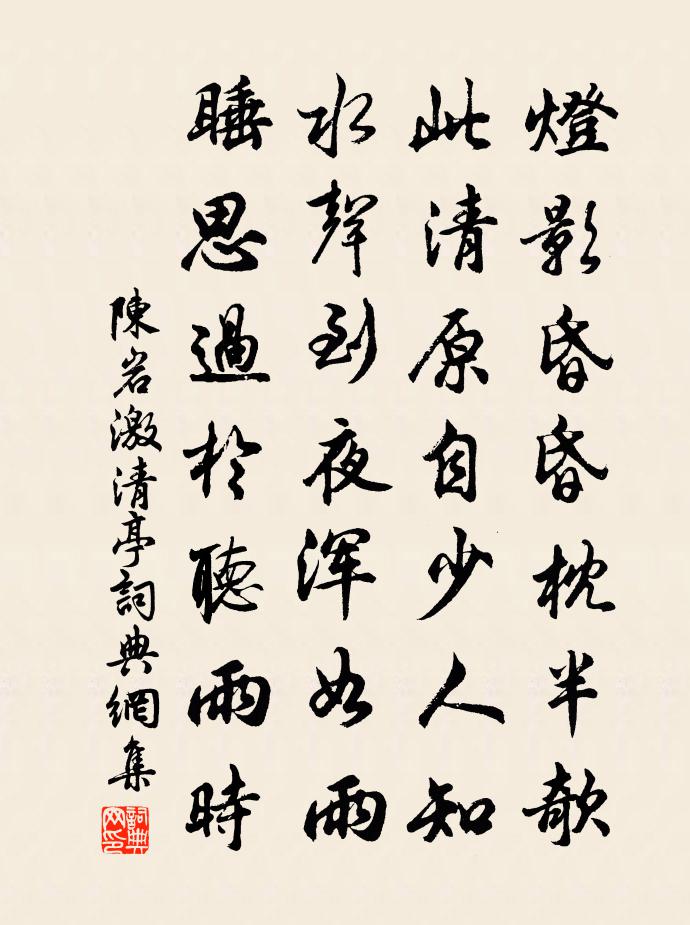 燈影昏昏枕半欹
此清原自少人知
水聲到夜渾如雨
睡思過於聽雨時
陳岩激清亭詞典網集
詞典網印